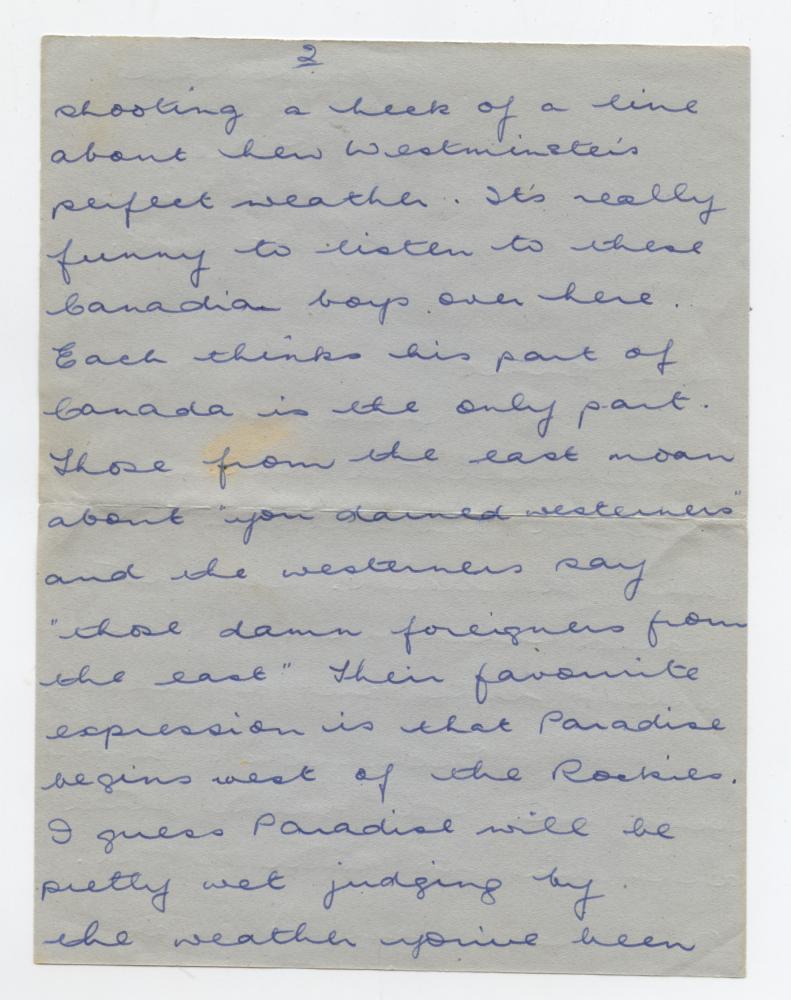 2
shooting a heck of a line
about New Westminster's
perfect weather. It's really
funny to listen to these
Canadian boys over here.
Each thinks his part of
Canada is the only part.
Those from the east moan
about "you darned westerners"
and the westerners say
"those damn foreigners from
the east" Their favourite
expression is that Paradise
begins west of the Rockies.
I guess Paradise will be
pretty wet judging by
the weather you've been